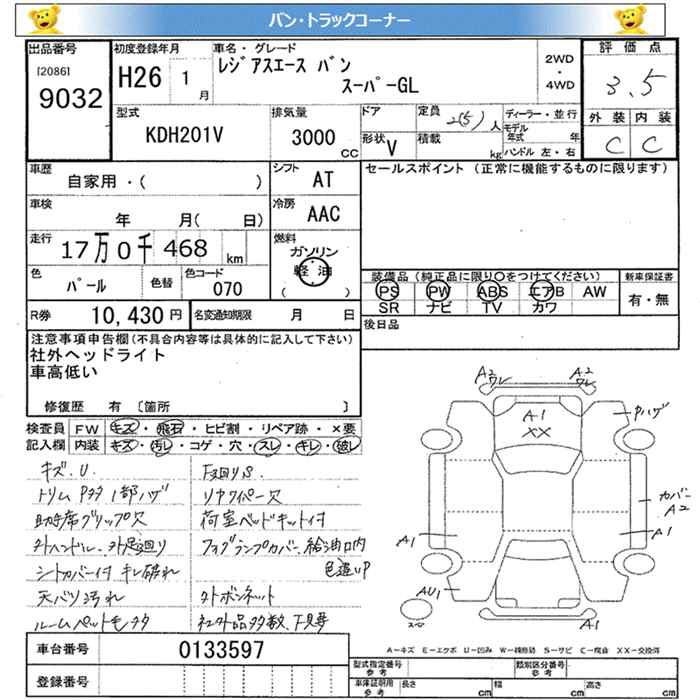 バン・トラックコーナー
出品番号
[2086]
9032
初度登録年月
H26 1月
車名・グレード
レジアスエース バン
スーパーGL
2WD
・
4WD
評価点
3.5
外装 内装
C C
型式
KDH201V
排気量
3000 CC
ドア
形状 V
定員 2(5)人
積載 kg
ディーラー・並行
モデル年式 年
ハンドル 左・右
車歴
自家用・( )
シフト AT
車検
年 月( 日)
冷房 AAC
走行
17万0千468 km
燃料
ガソリン
軽油
( )
色 パール 色替
色コード 070
R券 10,430円
名変通知期限 月 日
セールスポイント (正常に機能するものに限ります)
装備品 (純正品に限り○をつけてください)
PS PW ABS エアB AW
SR ナビ TV カワ
新車保証書
有・無
後日品
注意事項申告欄(不具合内容等は具体的に記入して下さい)
社外ヘッドライト
車高低い
修復歴 有 〔箇所 〕
検査員記入欄
FW キズ・飛石・ヒビ割・リペア跡・×要
内装 キズ・汚れ・コゲ・穴・スレ・キレ・破レ
キズ.U
トリムPタタ1部ハゲ
助手席グリップ欠
外ハンドル、外足廻り
シートカバー付 キレ破れ
天バリ汚れ
ルームペットモタタ
下廻りS
リヤワイパー欠
荷室ベッドキット付
フォグランプカバー、給油口内
色違いP
外ボンネット
社外品多数、下見等
A2
ワレ
A2
ワレ
A1
XX
Pハゲ
カバー
A2
A1
A1
AU1
A1
A−キズ E−エクボ U−凹み W−補修跡 S−サビ C−腐食 XX−交換済
車台番号 0133597
登録番号
型式指定番号
参考
類別区分番号
参考
車庫証明用
参考
長さ cm 幅 cm 高さ cm